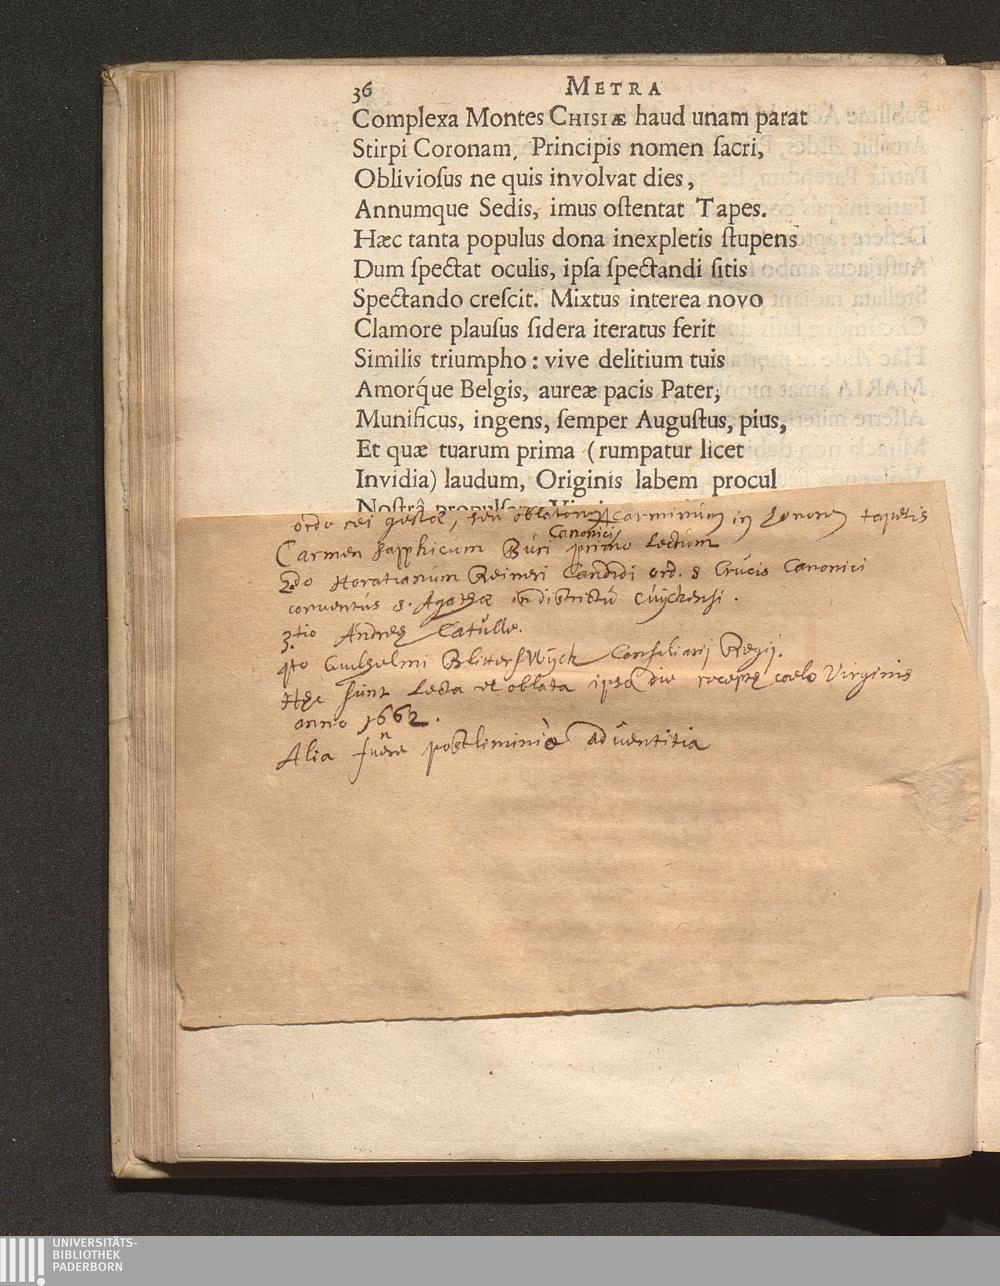 36 METRA
Complexa Montes CHISIÆ haud unam parat
Stirpi Coronam, Principis nomen ſacri,
Oblivioſus ne quis involvat dies,
Annumque Sedis, imus oſtentat Tapes.
Hæc tanta populus dona inexpletis ſtupens
Dum ſpectat oculis, ipſa ſpectandi ſitis
Spectando creſcit. Mixtus interea novo
Clamore plauſus ſidera iteratus ferit
Similis triumpho: vive delitium tuis
Amorq́ue Belgis, aureæ pacis Pater,
Munificus, ingens, ſemper Auguſtus, pius,
Et quæ tuarum prima (rumpatur licet
Invidia) laudum, Originis labem procul
Noſtrâ
ordo rei gestæ, seu oblationis carminum in honorem tapetis
Canonici
Carmen sapphicum Buri primo lectum
2do Horatianum Reineri Candidi ord. S Crucis Canonici
conventus S. Agathæ in districtu Cuyckensi.
3.tio Andreę Catulle.
4to Guilhelmi Blitterswyck Consiliarij Regij.
Hęc sunt lecta et oblata ipsa die receptę coelo Virginis
anno 1662.
Alia fuere postliminiò adventitia
UNIVERSITÄTS-
BIBLIOTHEK
PADERBORN